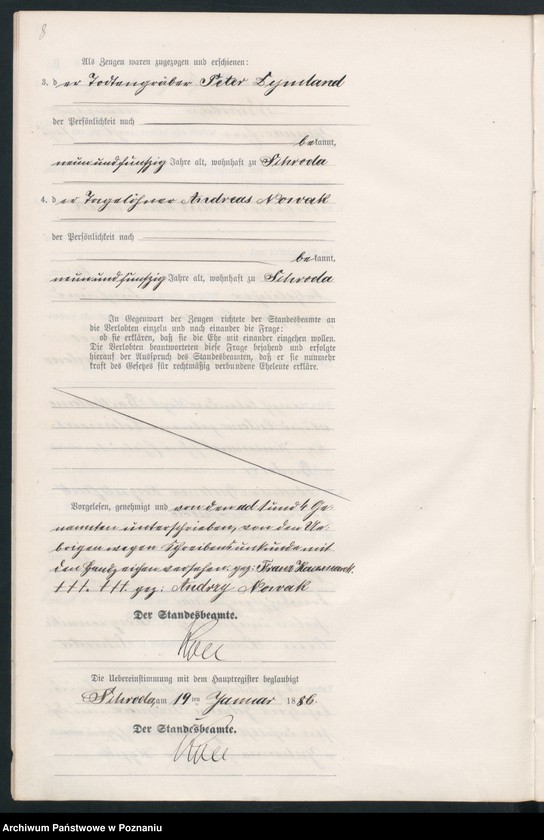 8
Als Zeugen waren zugezogen und erschienen:
3. der Todtengräber Peter Dymland
der Persönlichkeit nach
bekannt,
neunundfünfzig Jahre alt, wohnhaft zu Schroda
4. der Tagelöhner Andreas Nowak
der Persönlichkeit nach
bekannt,
neunundfünfzig Jahre alt, wohnhaft zu Schroda
In Gegenwart der Zeugen richtete der Standesbeamte an
die Verlobten einzeln und nach einander die Frage:
ob sie erklären, daß sie die Ehe mit einander eingehen wollen.
Die Verlobten beantworteten diese Frage bejahend und erfolgte
hierauf der Ausspruch des Standesbeamten, daß er sie nunmehr
kraft des Gesetzes für rechtmäßig verbundene Eheleute erkläre.
Vorgelesen, genehmigt und von den ad 1 und 4 Ge-
nannten unterschrieben, von den Ue-
brigen wegen Schreibensunkunde mit
den Handzeichen versehen. gez: Franz Kaczmarek.
+++. +++ gez: Andrzy Nowak
Der Standesbeamte.
Die Uebereinstimmung mit dem Hauptregister beglaubigt
Schroda, am 19ten Januar 1886.
Der Standesbeamte.
Archiwum Państwowe w Poznaniu